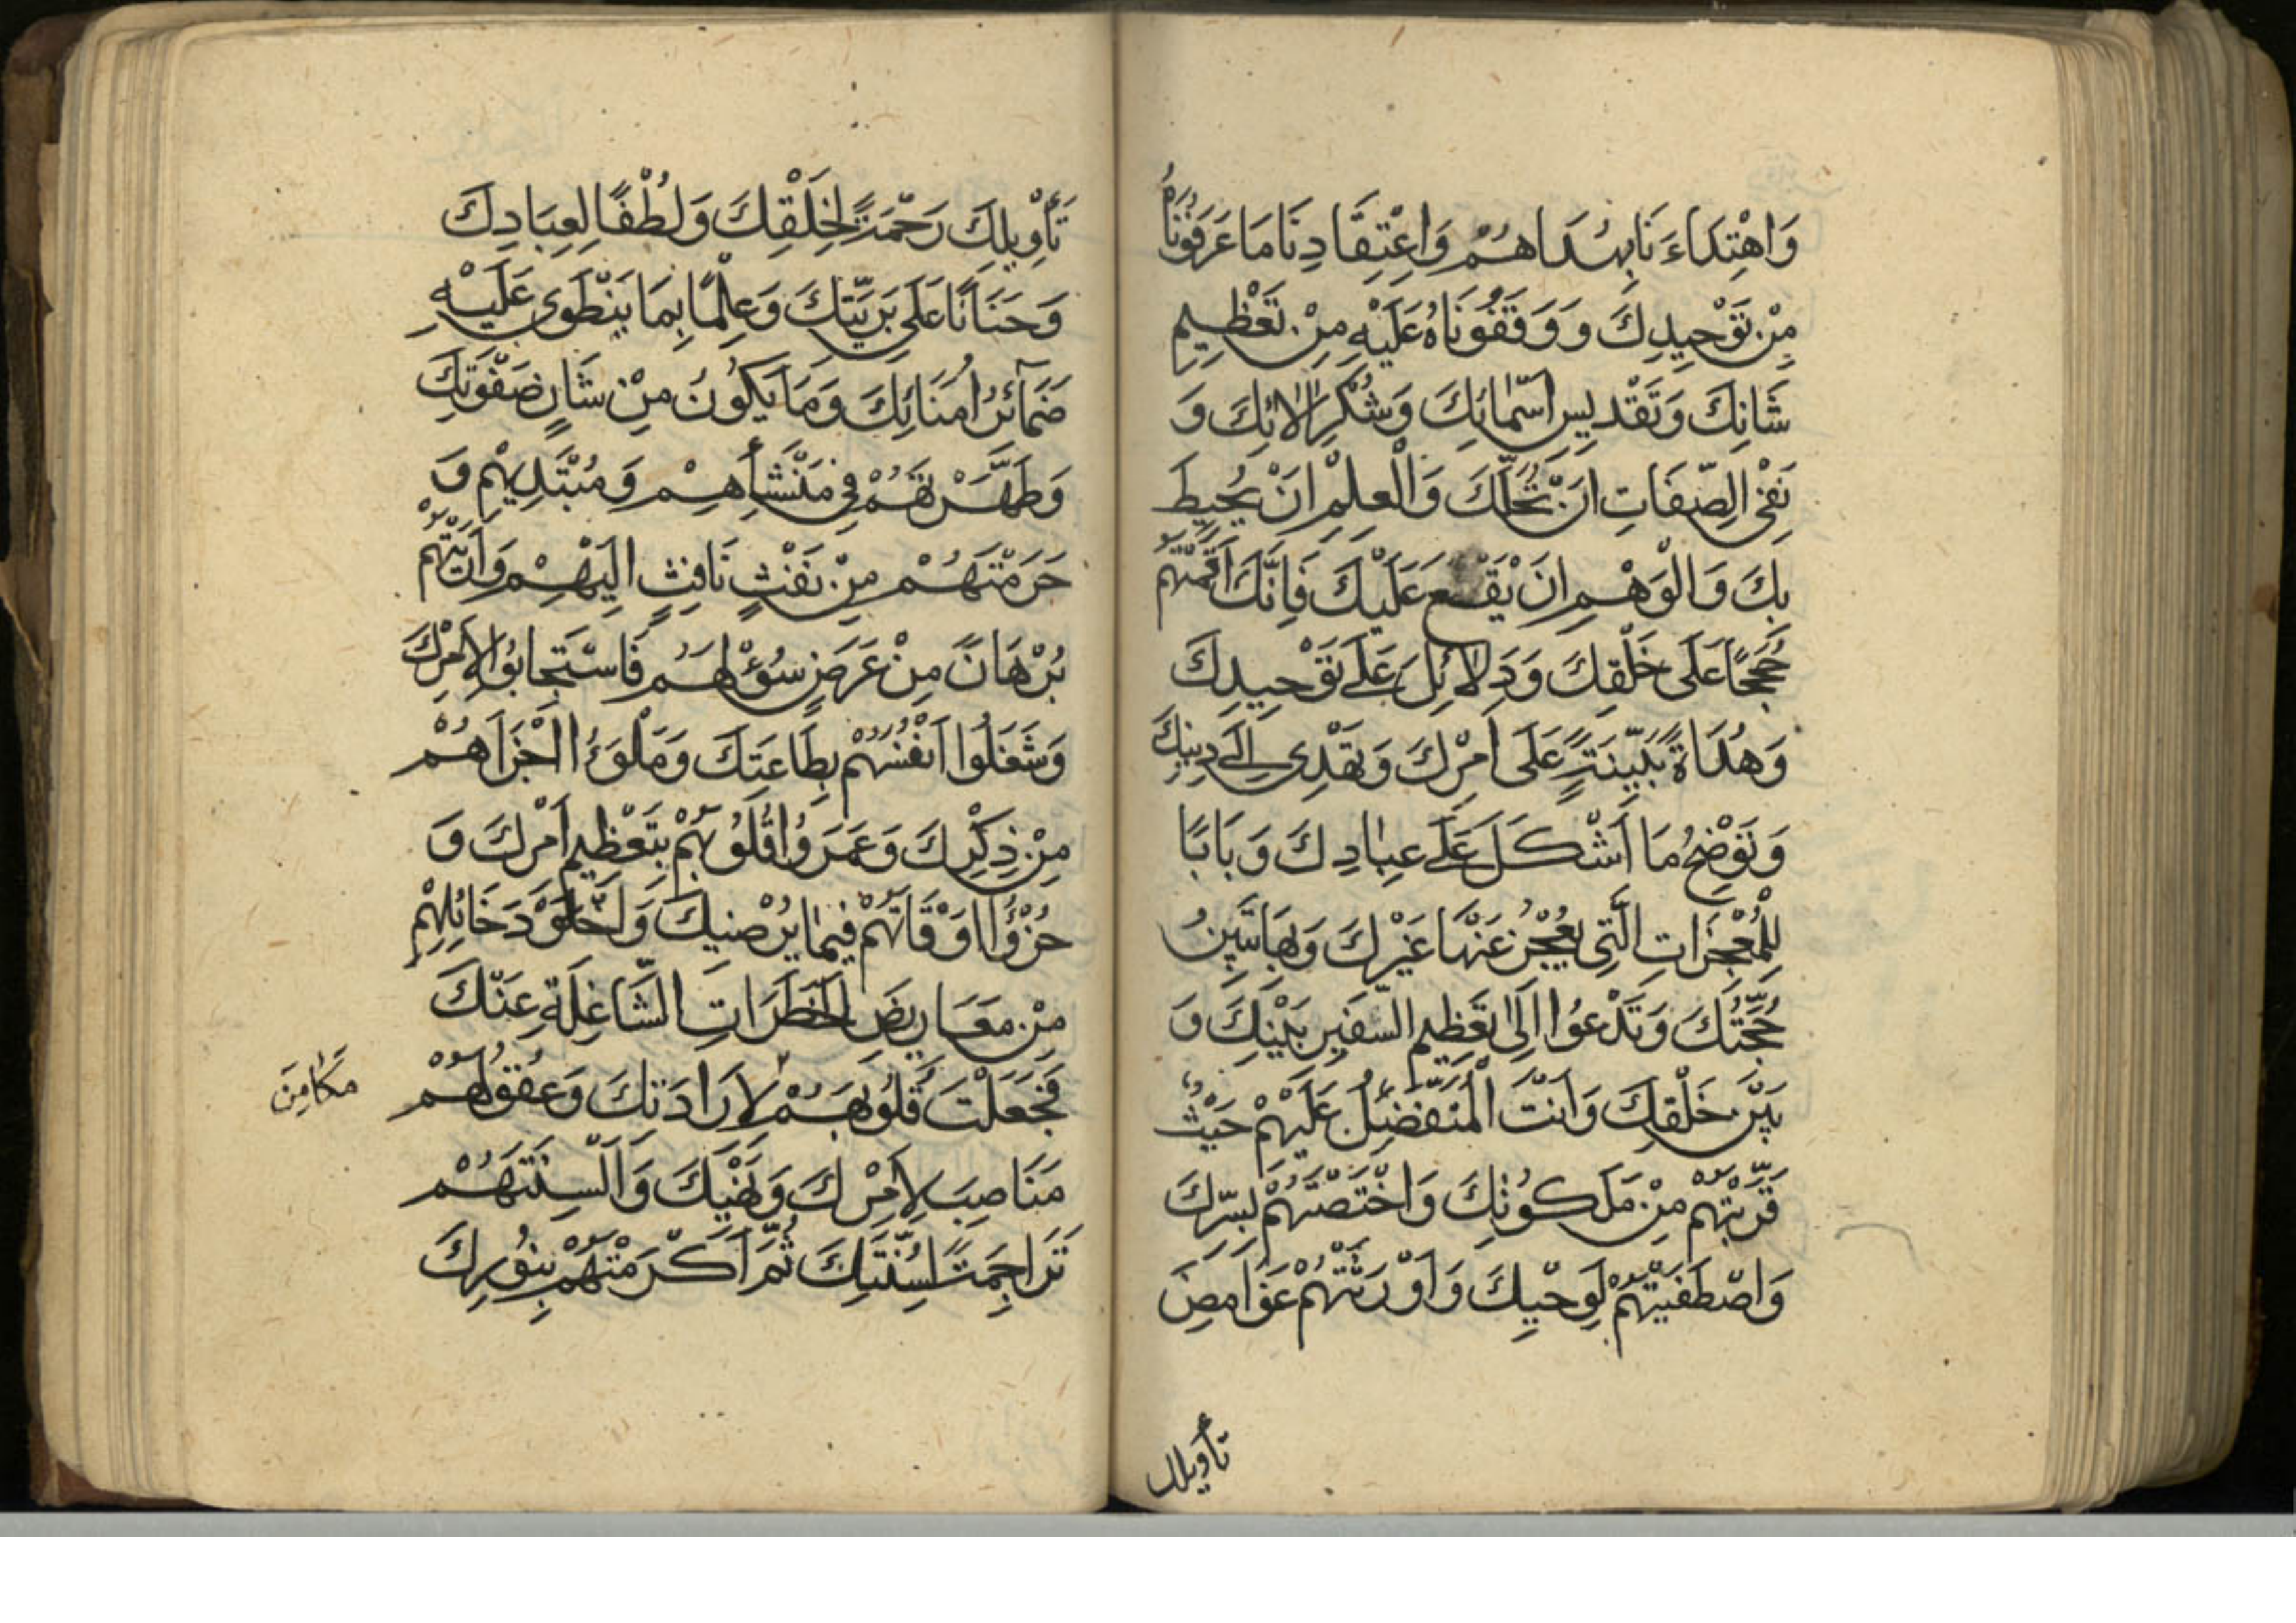 وَاهْتِدَاءَ نَابِهُدَاهُمْ وَاعْتِقَادِنَا مَا عَرَّفُونَاهُ
مِنْ تَوْحِيدِكَ وَ وَقَفُونَاهُ عَلَيْهِ مِنْ تَعْظِيمِ
شَانِكَ وَتَقْدِيسِ اَسْمَائِكَ وَشُكْرِ الَائِكَ وَ
نَفْيِ الصِّفَاتِ اَنْ تَحُلَّكَ وَالْعِلْمِ اَنْ يُحِيطَ
بِكَ وَالْوَهْمِ اَنْ يَقَعَ عَلَيْكَ فَاِنَّكَ اَقَمْتَهُمْ
حُجَجًا عَلَى خَلْقِكَ وَدَلَائِلَ عَلَى تَوْحِيدِكَ
وَهُدَاةً بَيِّنَةً عَلَى اَمْرِكَ وَتَهْدِى اِلَى دِينِكَ
وَتَوْضِحُ مَا اَشْكَلَ عَلَى عِبَادِكَ وَبَابًا
لِلْمُعْجِزَاتِ الَّتِى يَعْجِزُ عَنْهَا غَيْرُكَ وَبِهَا تَبِينُ
حُجَّتُكَ وَتَدْعُوا اِلَى تَعْظِيمِ السَّفِيرِ بَيْنِكَ وَ
بَيْنَ خَلْقِكَ وَاَنْتَ الْمُتَفَضِّلُ عَلَيْهِمْ حَيْثُ
قَرَّبْتَهُمْ مِنْ مَلَكُوتِكَ وَاخْتَصَصْتَهُمْ لِسِرِّكَ
وَاصْطَفَيْتَهُمْ لِوَحْيِكَ وَاَوْرَثْتَهُمْ غَوَامِضَ
تأويلك
تَأْوِيلِكَ رَحْمَةً لِخَلْقِكَ وَلُطْفًا لِعِبَادِكَ
وَحَنَانًا عَلَى بَرِيَّتِكَ وَعِلْمًا بِمَا يَنْطَوِى عَلَيْهِ
ضَمَآئِرُ اُمَنَائِكَ وَمَا يَكُونُ مِنْ شَانِ صَفْوَتِكَ
وَطَهَّرْتَهُمْ فِى مَنْشَأِهِمْ وَمُبْتَدِيهِمْ وَ
حَرَسْتَهُمْ مِنْ نَفْثِ نَافِثٍ اِلَيْهِمْ وَاَرَيْتَهُمْ
بُرْهَانً مِنْ عَرَضٍ سُوْءٍ لَهُمْ فَاسْتَجَابُوا لِاَمْرِكَ
وَشَغَلُوا اَنْفُسَهُمْ بِطَاعَتِكَ وَمَلَؤُا اَجْزَاهُمْ
مِنْ ذِكْرِكَ وَعَمَرُوا قُلُوبَهُمْ بِتَعْظِيمِ اَمْرِكَ وَ
جَزَّؤُا اَوْقَاتَهُمْ فِيمَا يُرْضِيكَ وَاَخْلَوْ دَخَائِلَهُمْ
مِنْ مَعَارِيضِ الْخَطَرَاتِ الشَّاغِلَةِ عَنْكَ
فَجَعَلْتَ قُلُوبَهُمْ لِاِرَادَتِكَ وَعُقُولَهُمْ
مَكَامِنَ
مَنَاصِبَ لِاَمْرِكَ وَنَهْيِكَ وَاَلْسِنَتَهُمْ
تَرَاجِمَةً لِسُنَّتِكَ ثُمَّ اَكْرَمْتَهُمْ بِنُورِكَ